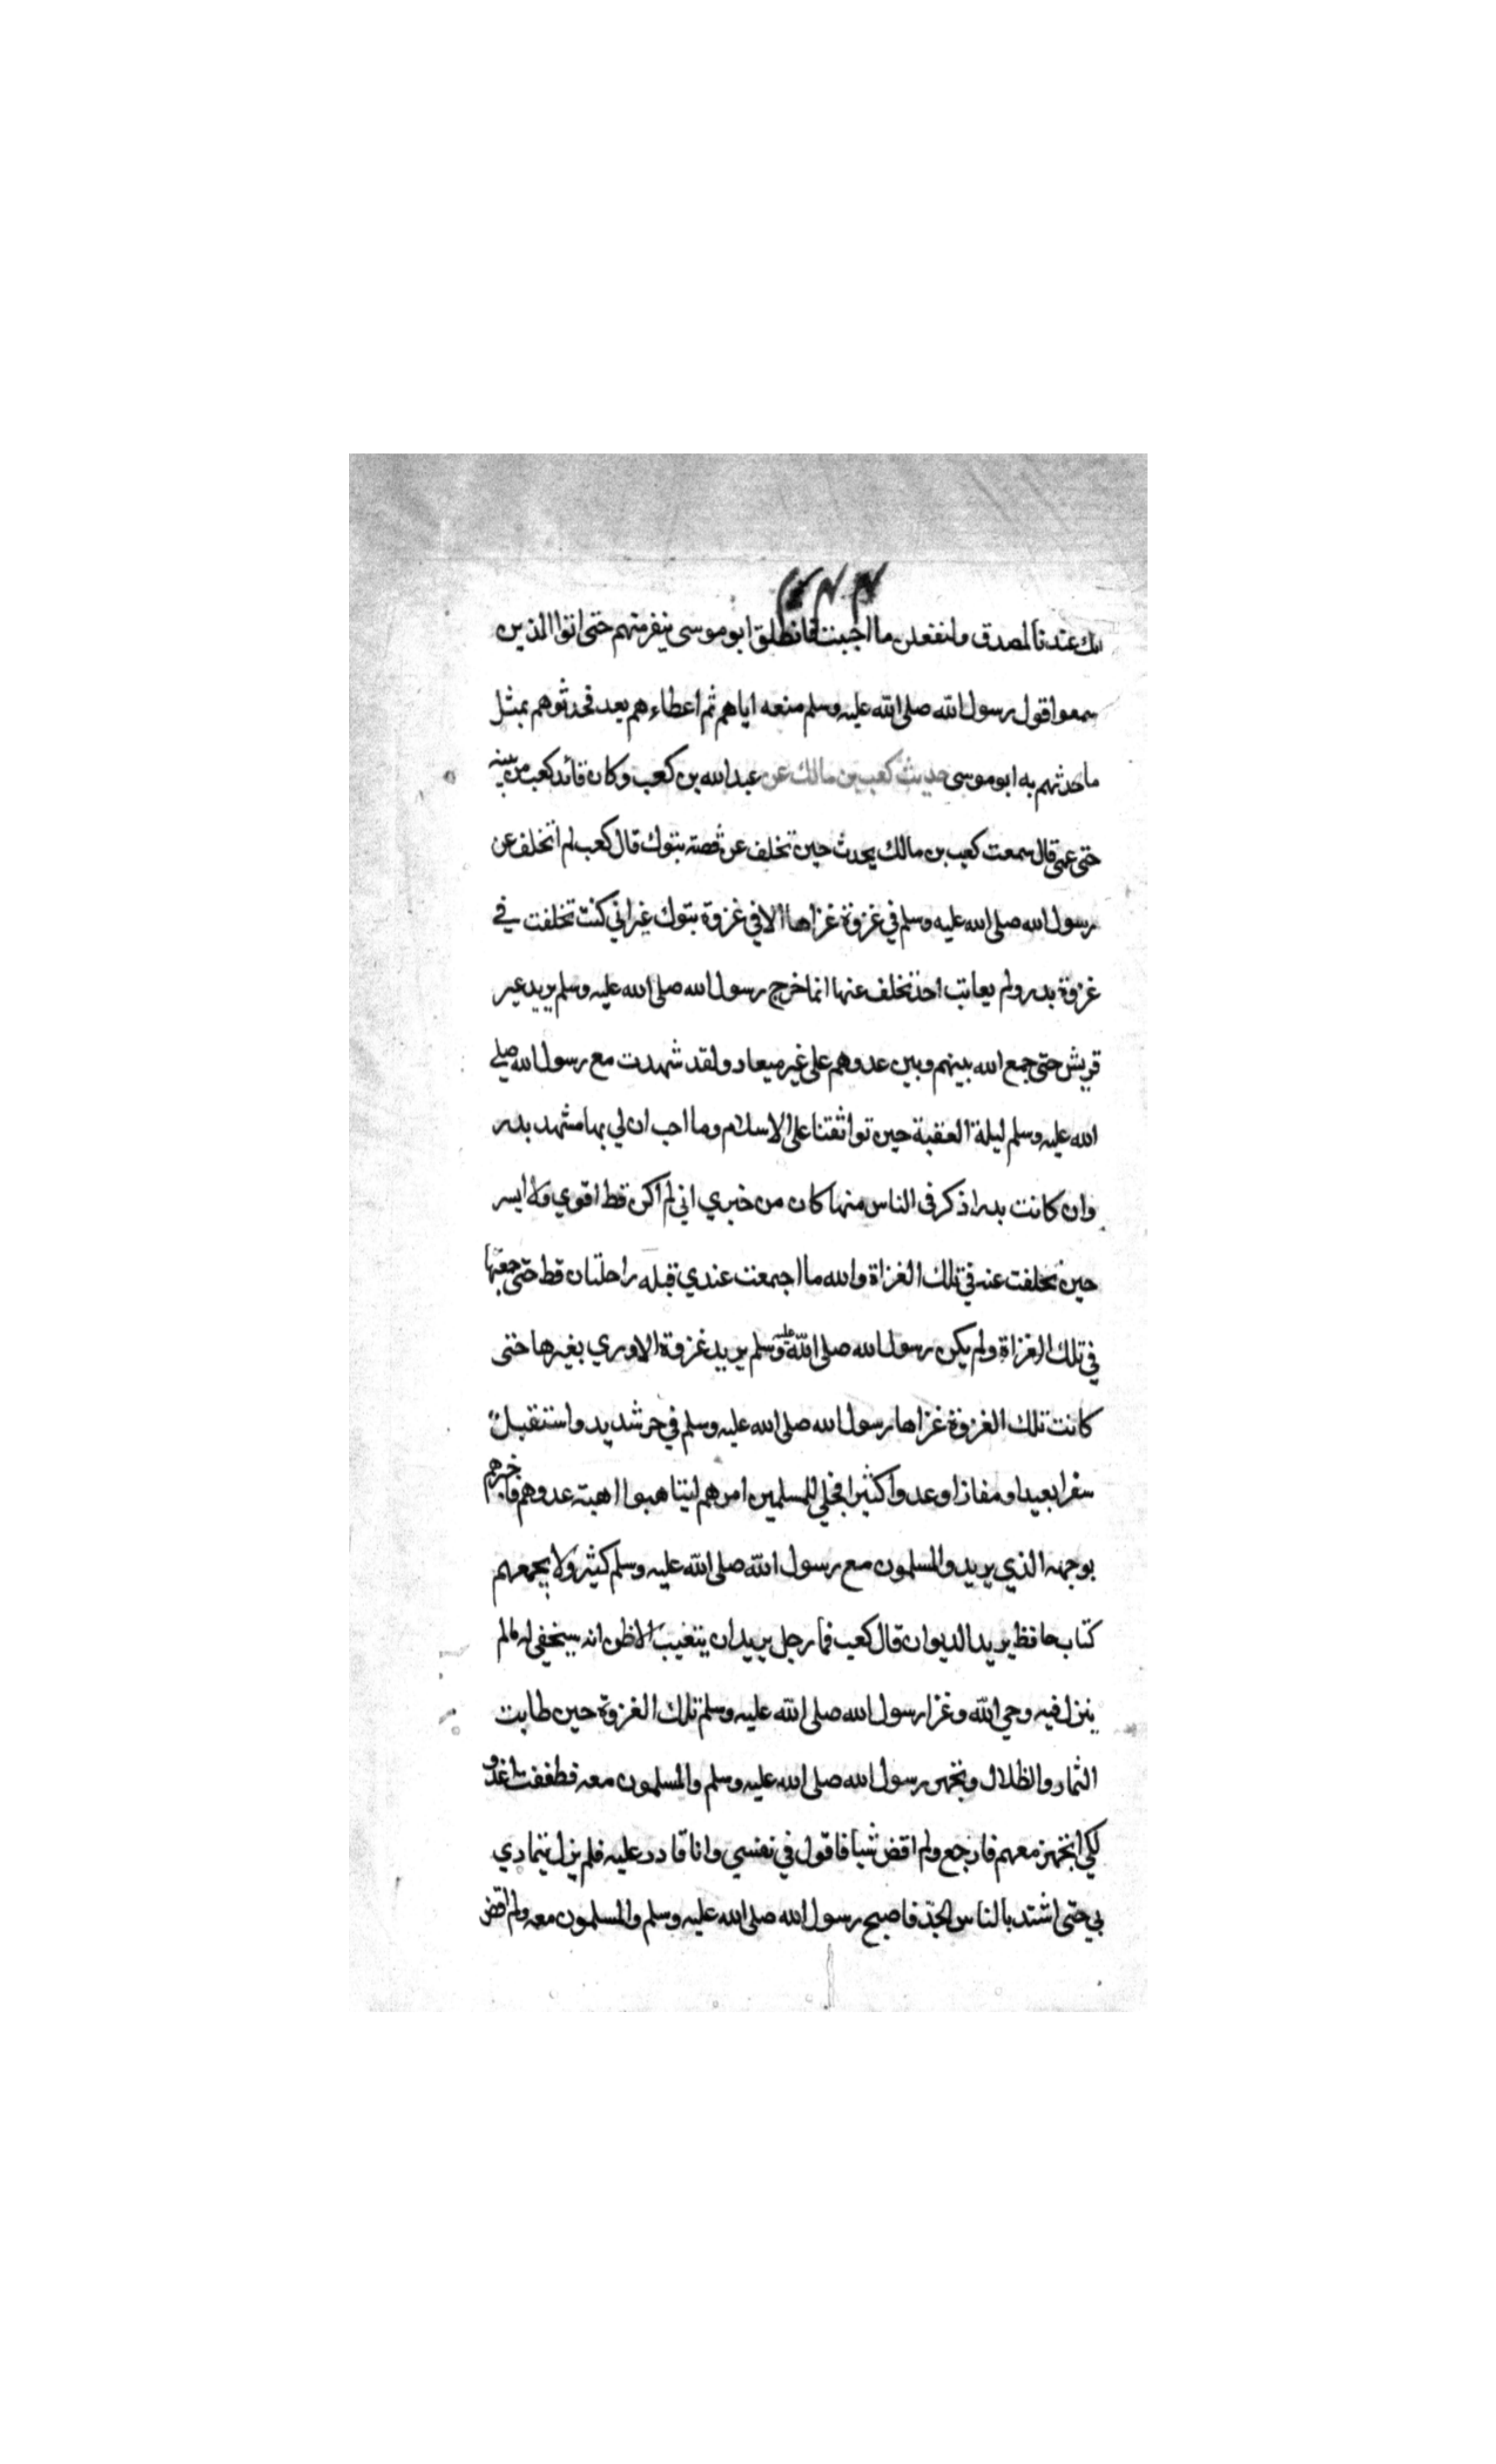 انك عندنا لمصدق ولنفعلن ما اجبت فانطلق ابو موسى بنفر منهم حتى اتوا الذين
سمعوا قول رسول الله صلى الله عليه وسلم منعه اياهم ثم اعطاءهم بعد فحدثوهم بمثل
ما حدثهم به ابو موسى حديث كعب بن مالك عن عبد الله بن كعب وكان قائد كعب من بنيه
حتى عمى قال سمعت كعب بن مالك يحدث حين تخلف عن قصة تبوك قال كعب لم اتخلف عن
رسول الله صلى الله عليه وسلم في غزوة غزاها الا في غزوة تبوك غير اني كنت تخلفت في
غزوة بدر ولم يعاتب احد تخلف عنها انما خرج رسول الله صلى الله عليه وسلم يريد عير
قريش حتى جمع الله بينهم وبين عدوهم على غير ميعاد ولقد شهدت مع رسول الله صلى
الله عليه وسلم ليلة العقبة حين تواثقنا على الاسلام وما احب ان لي بها مشهد بدر
وان كانت بدر اذكر في الناس منها كان من خبري اني لم اكن قط اقوي ولا ايسر
حين تخلفت عنه في تلك الغزاة والله ما اجمعت عندي قبله راحلتان قط حتى جمعتها
في تلك الغزاة ولم يكن رسول الله صلى الله عليه وسلم يريد غزوة الا وري بغيرها حتى
كانت تلك الغزوة غزاها رسول الله صلى الله عليه وسلم في حر شديد واستقبل
سفرا بعيدا ومفازا وعدوا كثيرا فجلي للمسلمين امرهم ليتاهبوا اهبة عدوهم فاخبرهم
بوجهه الذي يريد والمسلمون مع رسول الله صلى الله عليه وسلم كثير ولا يجمعهم
كتاب حافظ يريد الديوان قال كعب فما رجل يريد ان يتغيب الا ظن انه سيخفى له مالم
ينزل فيه وحي الله وغزا رسول الله صلى الله عليه وسلم تلك الغزوة حين طابت
الثمار والظلال وتجهز رسول الله صلى الله عليه وسلم والمسلمون معه فطفقت اغدو
لكي اتجهز معهم فارجع ولم اقض شيا فاقول في نفسي وانا قادر عليه فلم يزل يتمادي
بي حتى اشتد بالناس الجد فاصبح رسول الله صلى الله عليه وسلم والمسلمون معه ولم اقض